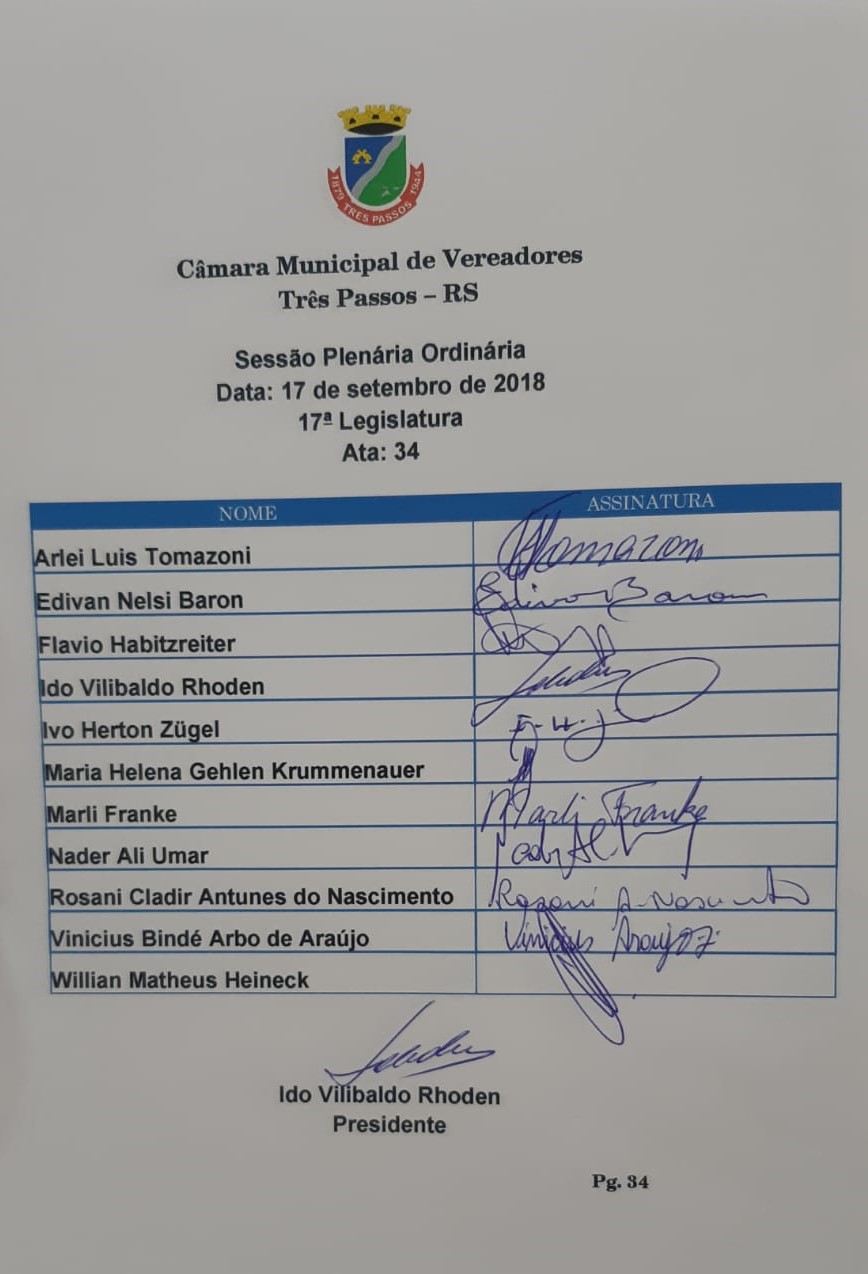 1879 TRES PASSOS 1944
Câmara Municipal de Vereadores
Três Passos – RS
Sessão Plenária Ordinária
Data: 17 de setembro de 2018
17ª Legislatura
Ata: 34
NOME ASSINATURA
Arlei Luis Tomazoni Tomazoni
Edivan Nelsi Baron Edivan Baron
Flavio Habitzreiter
Ido Vilibaldo Rhoden
Ivo Herton Zügel
Maria Helena Gehlen Krummenauer
Marli Franke Marli Franke
Nader Ali Umar
Rosani Cladir Antunes do Nascimento Rosani A. Nascimento
Vinicius Bindé Arbo de Araújo Vinicius Araujo
Willian Matheus Heineck
Ido Vilibaldo Rhoden
Presidente
Pg. 34